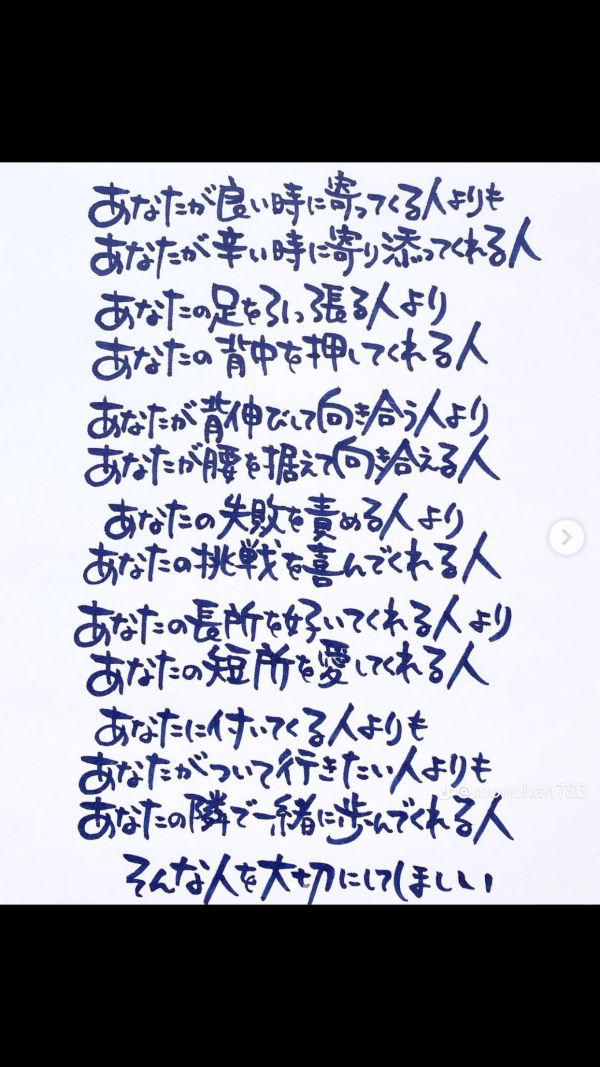 あなたが良い時に寄ってくる人よりも
あなたが辛い時に寄り添ってくれる人
あなたの足を引っ張る人より
あなたの背中を押してくれる人
あなたが背伸びして向き合う人より
あなたが腰を据えて向き合える人
あなたの失敗を責める人より
あなたの挑戦を喜んでくれる人
あなたの長所を好いてくれる人より
あなたの短所を愛してくれる人
あなたに付いてくる人よりも
あなたがついて行きたい人よりも
あなたの隣で一緒に歩んでくれる人
そんな人を大切にしてほしい